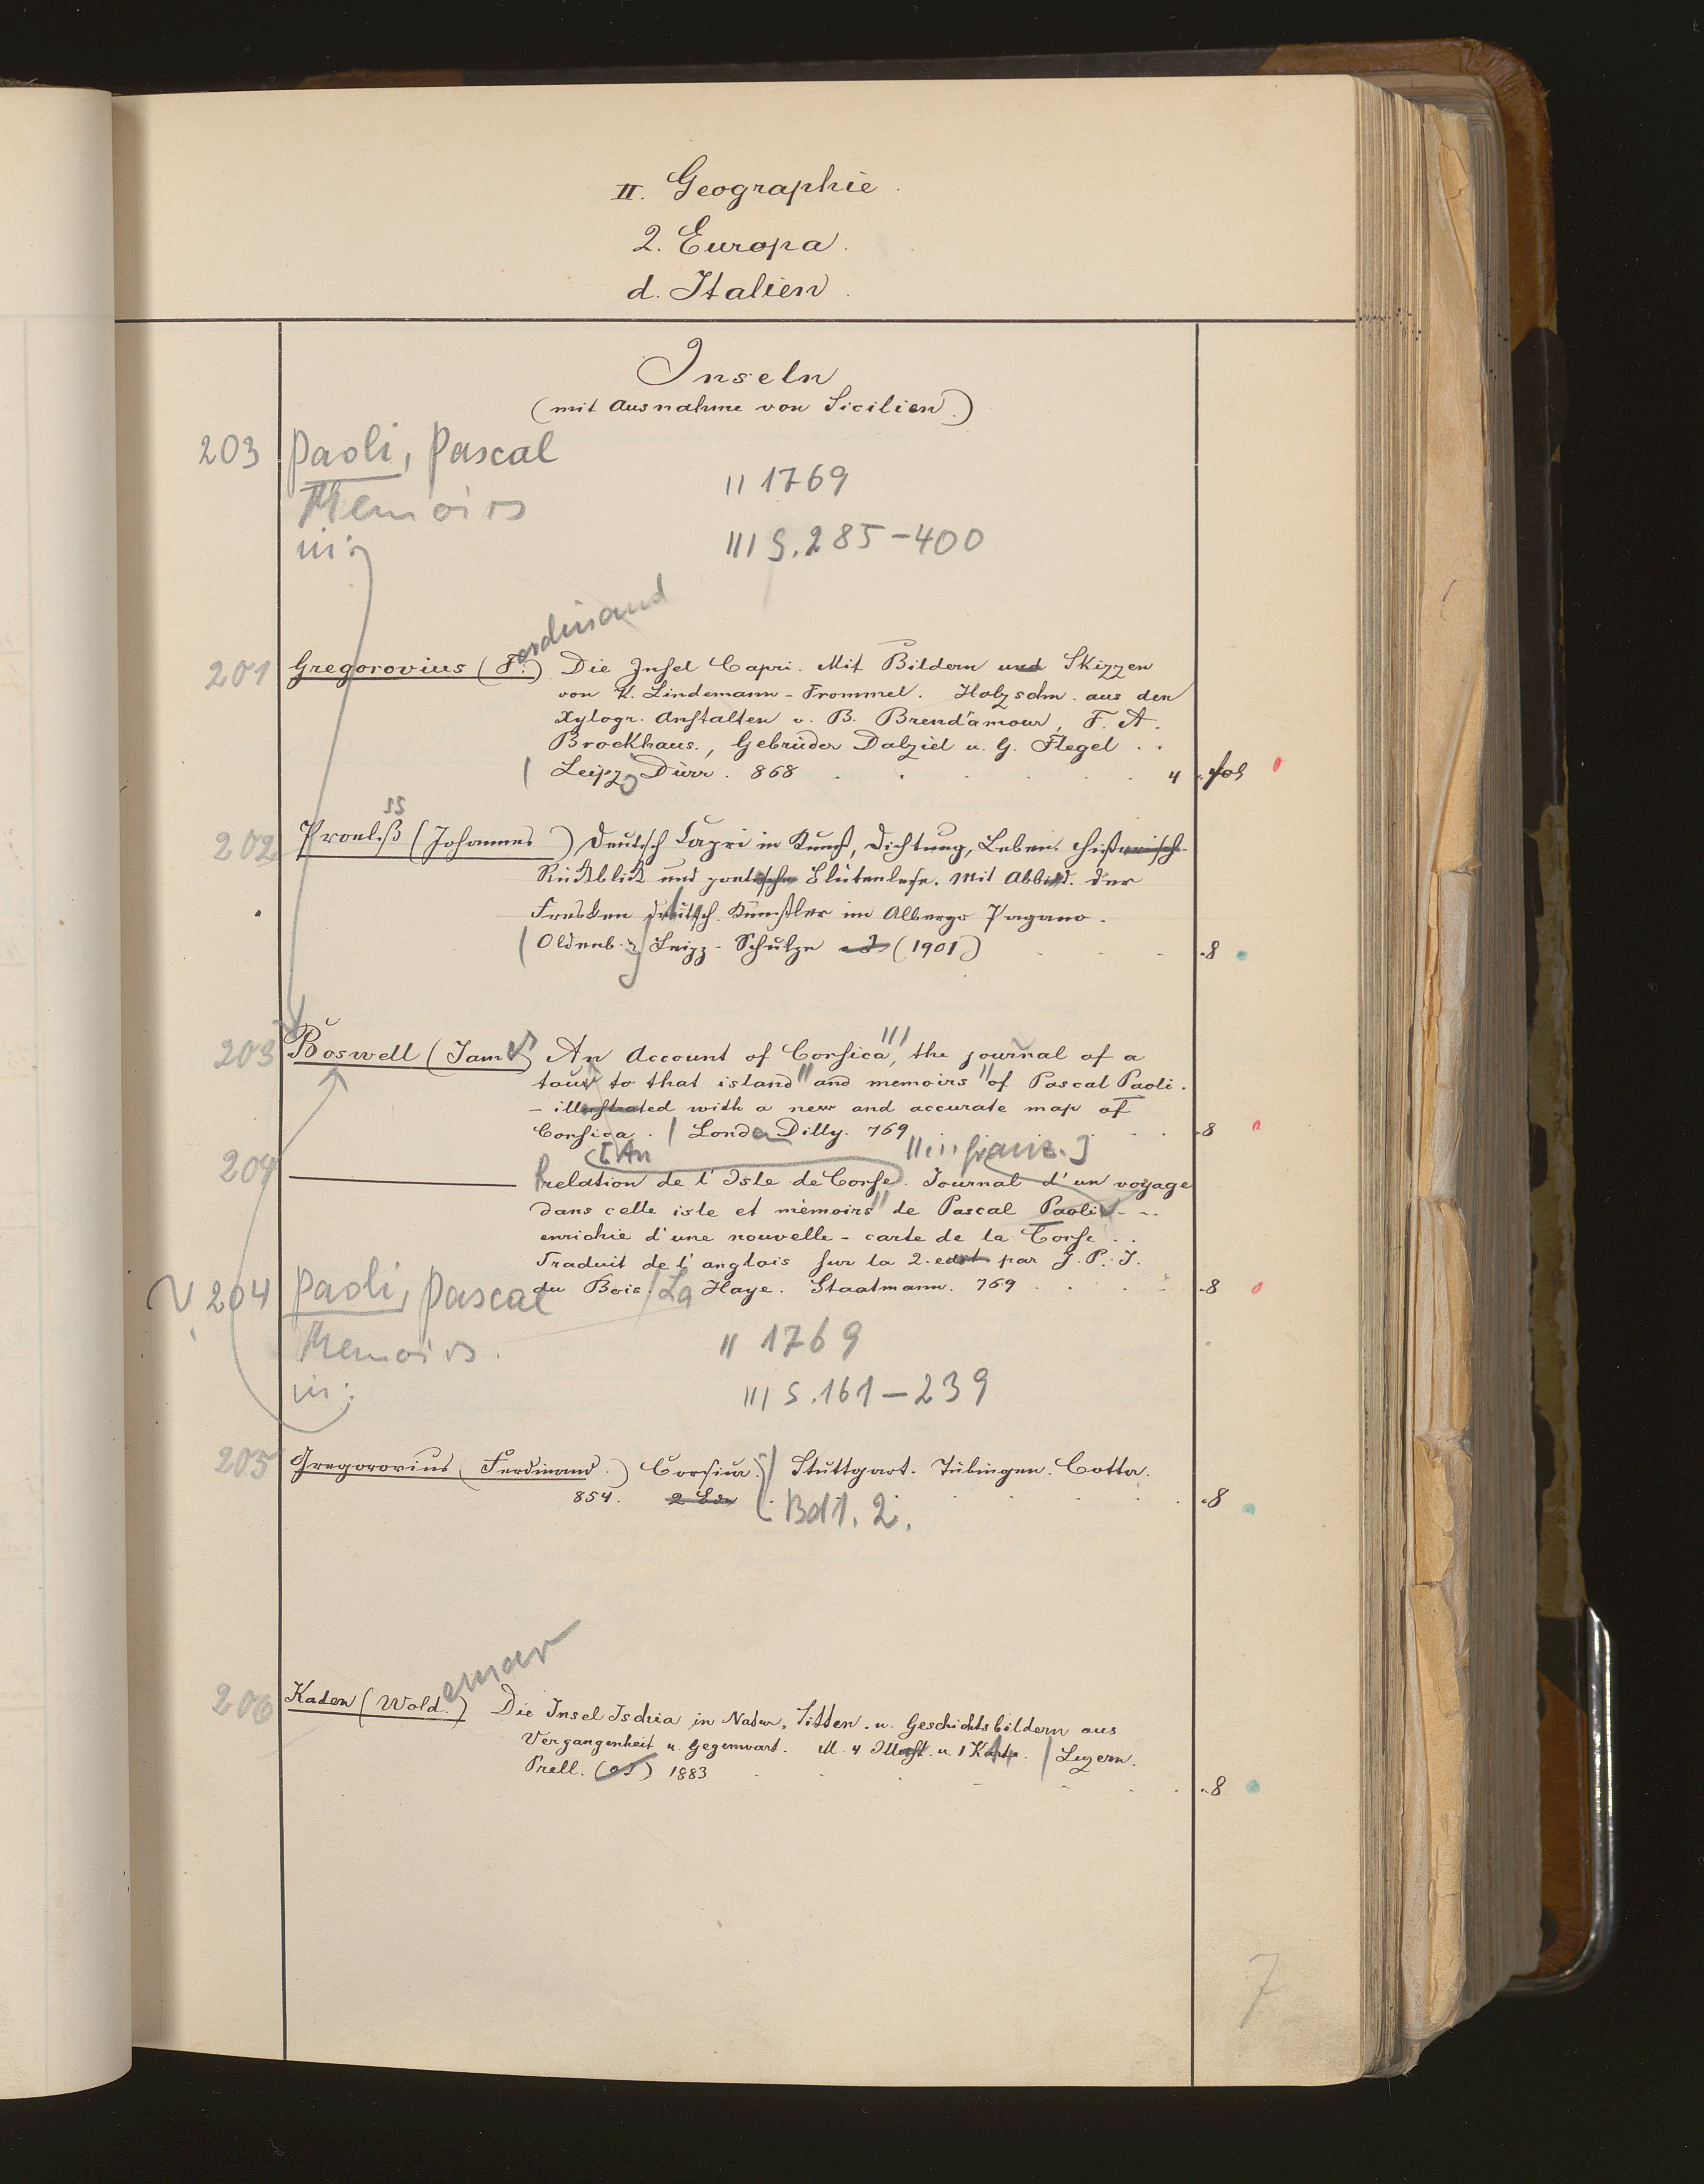 II. Geographie.
2. Europa.
d. Italien.
Inseln
(mit Ausnahme von Sicilien.)
203 Paoli, Pascal
II 1769
Memoirs
in:
III S. 285-400
erdinand
201 Gregorovius (F.) Die Insel Capri. Mit Bildern und Skizzen
von K. Lindemann-Frommel. Holzschn. aus den
Xylogr. Anstalten v. B. Brend'amour, F. A.
Brockhaus., Gebrüder Dalziel u. G. Flegel ..
| Leipz. Dürr. 868 4 fol
ss
202 Proelß (Johannes) Deutsch Capri in Kunst, Dichtung, Leben. Historisch.
Rückblick und poetische Blütenlese. Mit Abbild. der
Fresken deutsch. Künstler im Albergo Pagano.
| Oldenb. Leipz. Schulze (1901) 8
203 Boswell (James) An Account of Corsica, III the journal of a
tour to that island II and memoirs II of Pascal Paoli.
- illustrated with a new and accurate map of
Corsica. | London Dilly. 769 8
[An II in: franz.]
204 ——— relation de l'Isle de Corse. Journal d'un voyage
dans celle isle et mémoirs II de Pascal Paoli - ..
enrichie d'une nouvelle - carte de la Corse ..
Traduit de l'anglois sur la 2. edit par J. P. I.
du Bois. | La Haye. Staatmann. 769 8
V 204 Paoli, Pascal
Memoirs.
II 1769
in:
III S. 161-239
205 Gregorovius (Ferdinand.) Corsica. | Stuttgart. Tübingen. Cotta.
854. 2 Bde 8
Bd 1. 2.
emar
206 Kaden (Wold.) Die Insel Ischia in Natur, Sitten. u. Geschichtsbildern aus
Vergangenheit u. Gegenwart. M. 4 Illust. u. 1 Karte. | Luzern.
Prell. (oJ) 1883 8
7